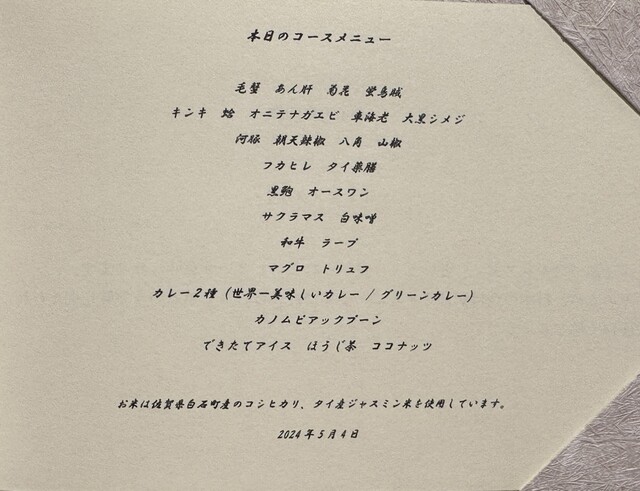 本日のコースメニュー
毛蟹　あん肝　菊花　蛍烏賊
キンキ　蛤　オニテナガエビ　車海老　大黒シメジ
河豚　朝天辣椒　八角　山椒
フカヒレ　タイ薬膳
黒鮑　オースワン
サクラマス　白味噌
和牛　ラープ
マグロ　トリュフ
カレー２種（世界一美味しいカレー / グリーンカレー）
カノムピアックプーン
できたてアイス　ほうじ茶　ココナッツ
お米は佐賀県白石町産のコシヒカリ、タイ産ジャスミン米を使用しています。
2024年5月4日